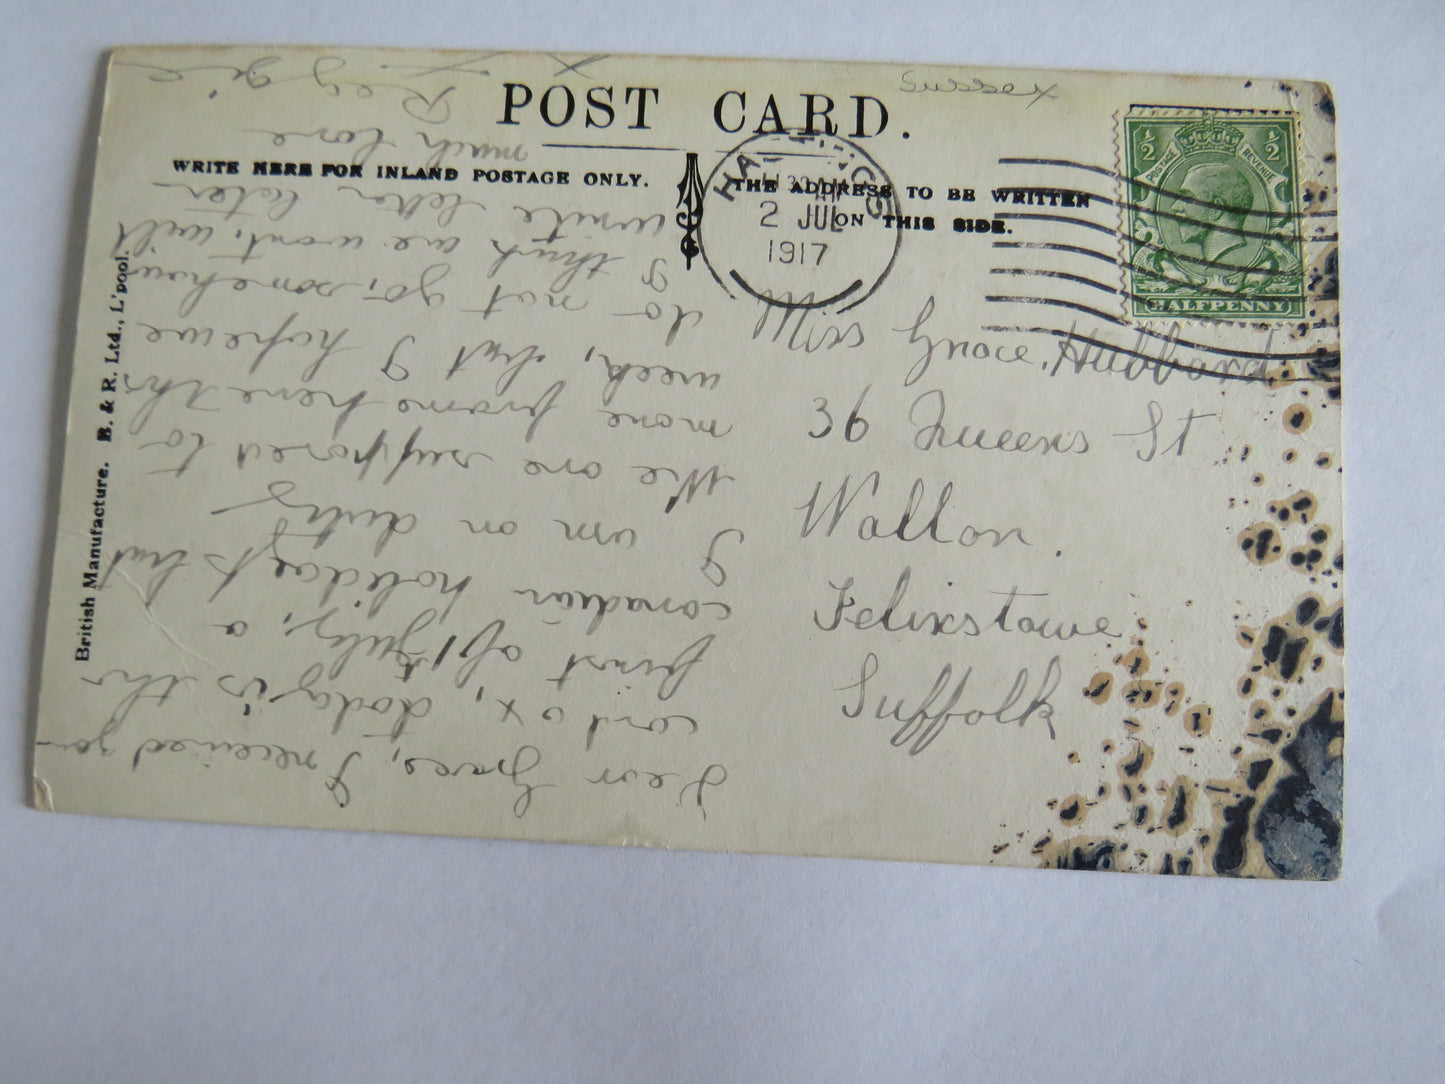 POST CARD.
WRITE HERE FOR INLAND POSTAGE ONLY.
THE ADDRESS TO BE WRITTEN
ON THIS SIDE.
British Manufacture. B. & R. Ltd., L'pool.
HASTINGS
2 JUL
1917
½ ½
POSTAGE REVENUE
HALFPENNY
Sussex
Miss Grace Hubbard
36 Queens St
Walton.
Felixstowe
Suffolk
Dear Grace, I received you
card ox, today is the
first of July, a
canadian holiday but
I am on duty
We are supposed to
move from here this
week, but I hope we
do not go, somehow
I think we wont, will
write letter later
much love
Reggie
x x